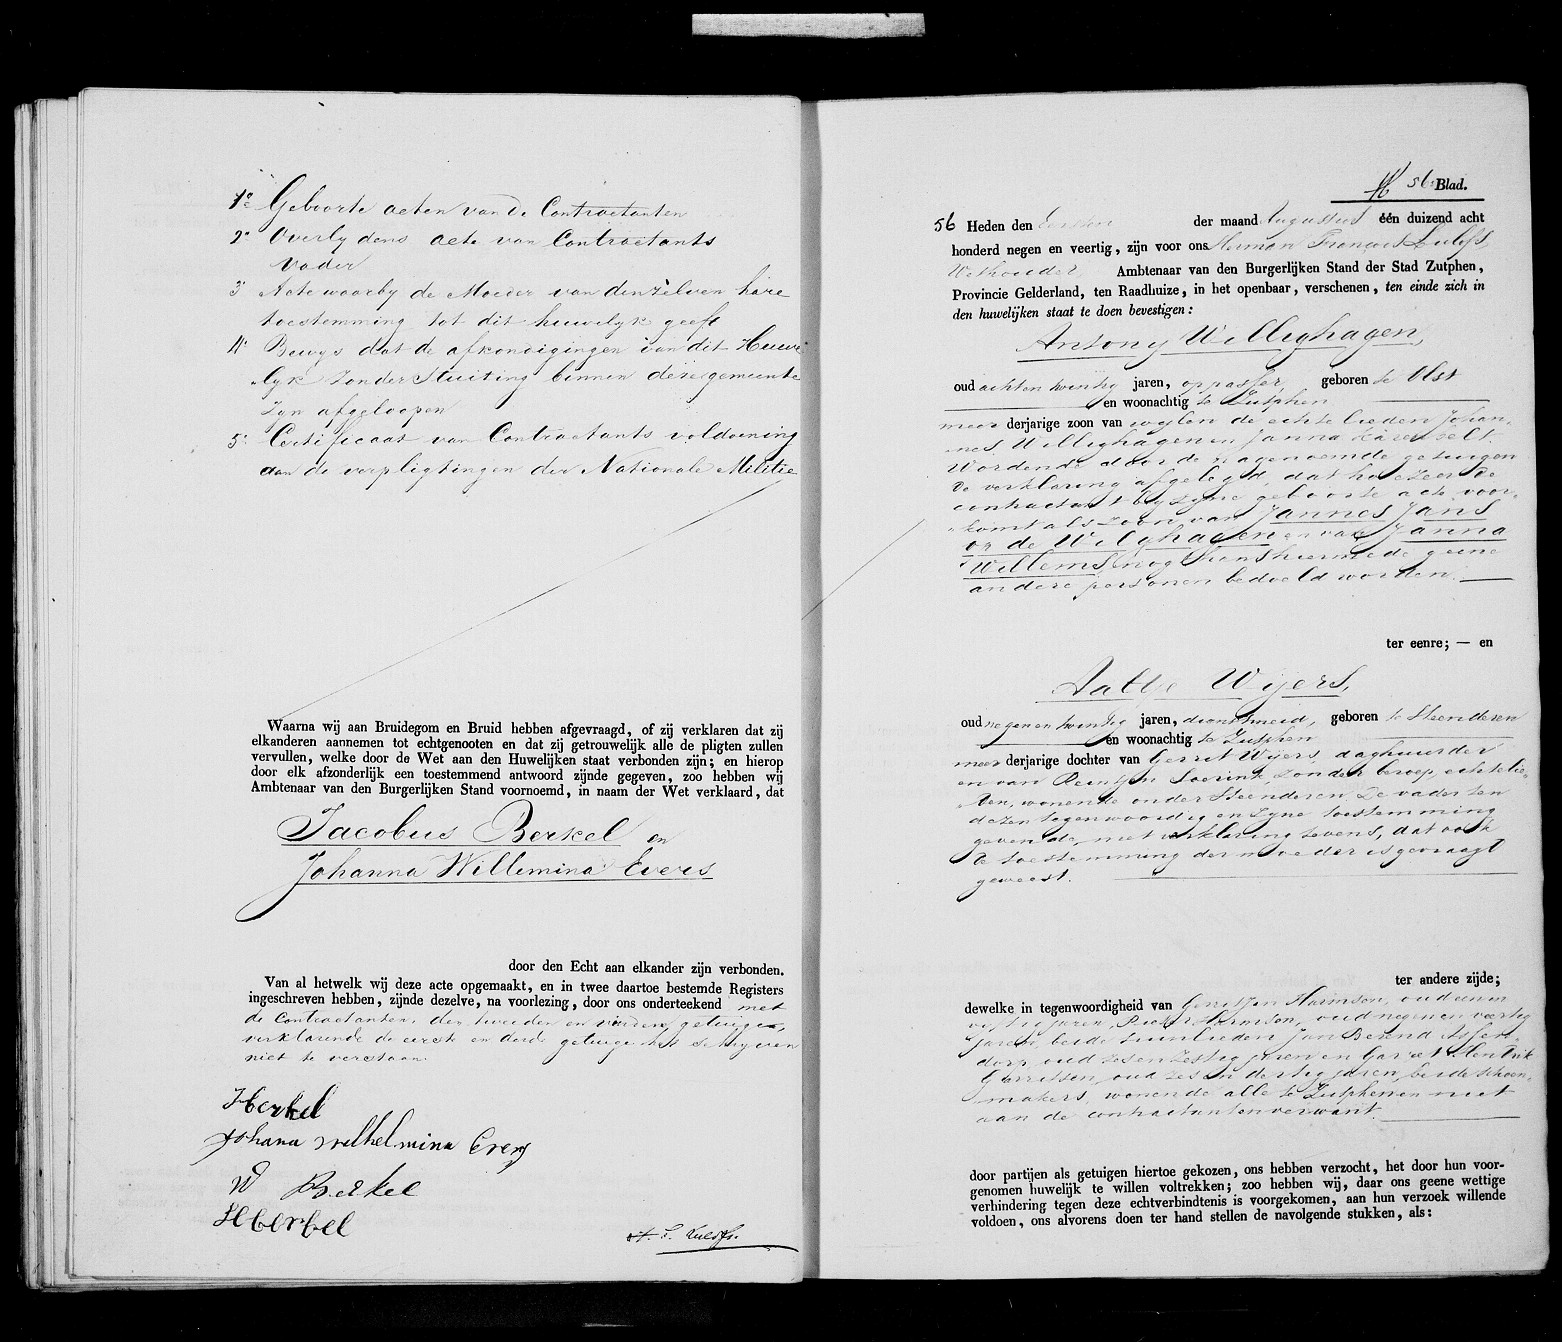 1º Geboorte acten van de Contractanten
2º Overlydens acte van Contractants
Vader
3º Acte waarby de Moeder van denzelven hare
toestemming tot dit huwelyk geeft
4º Bewys dat de afkondigingen van dit Huwe
lyk zonder Stuiting binnen deze gemeente
zyn afgeloopen
5º Certificaat van Contractants voldoening
aan de verpligtingen der Nationale Militie
Waarna wij aan Bruidegom en Bruid hebben afgevraagd, of zij verklaren dat zij
elkanderen aannemen tot echtgenooten en dat zij getrouwelijk alle de pligten zullen
vervullen, welke door de Wet aan den Huwelijken staat verbonden zijn; en hierop
door elk afzonderlijk een toestemmend antwoord zijnde gegeven, zoo hebben wij
Ambtenaar van den Burgerlijken Stand voornoemd, in naam der Wet verklaard, dat
Jacobus Berkel en
Johanna Willemina Evers
door den Echt aan elkander zijn verbonden.
Van al hetwelk wij deze acte opgemaakt, en in twee daartoe bestemde Registers
ingeschreven hebben, zijnde dezelve, na voorlezing, door ons onderteekend met
de Contractanten, den tweeden en vierden getuige,
verklarende de eerste en derde getuige het schryven
niet te verstaan.
HBerkel
Johana Wilhelmina Evers
W Berkel
HBerkel
H. F. Lulofs.
56 Blad.
56 Heden den Eersten der maand Augustus één duizend acht
honderd negen en veertig, zijn voor ons Herman François Lulofs
Wethouder Ambtenaar van den Burgerlijken Stand der Stad Zutphen,
Provincie Gelderland, ten Raadhuize, in het openbaar, verschenen, ten einde zich in
den huwelijken staat te doen bevestigen:
Antony Willighagen,
oud achten twintig jaren, oppasser, geboren te Olst
en woonachtig te Zutphen
meerderjarige zoon van wylen de echte lieden Johan-
nes Willighagen en Janna
Wordende door de nagenoemde getuigen
de verklaring afgelegd, dat hoezeer de
contractant by zyne geboorte acte voor-
komt als zoon van Jannes Jans
op de Wilghagen en van Janna
Willems, nogthans hiermede geene
andere personen bedoeld worden.
ter eenre; — en
Aaltje Wyers,
oud negenen twintig jaren, dienstmeid, geboren te Steenderen
en woonachtig te Zutphen
meerderjarige dochter van Gerrit Wyers, daghuurder
en van Reintjen zonder beroep, echtelie-
den, wonende onder Steenderen. De vader ten
dezen tegenwoordig en zyne toestemming
gevende, met verklaring tevens, dat ook
de toestemming der moeder is gevraagd
geweest.
ter andere zijde;
dewelke in tegenwoordigheid van Gerritjen Harmsen, oud eenen
vyftig jaren, Harmsen, oud negenen veertig
jaren, beide Jan Berend
oud zesen zestig jaren en Garret Hendrik
Gerritsen, oud zesen dertig jaren, beide schoen-
makers, wonende alle te Zutphen en niet
aan de contractanten verwant.
door partijen als getuigen hiertoe gekozen, ons hebben verzocht, het door hun voor-
genomen huwelijk te willen voltrekken; zoo hebben wij, daar ons geene wettige
verhindering tegen deze echtverbindtenis is voorgekomen, aan hun verzoek willende
voldoen, ons alvorens doen ter hand stellen de navolgende stukken, als: